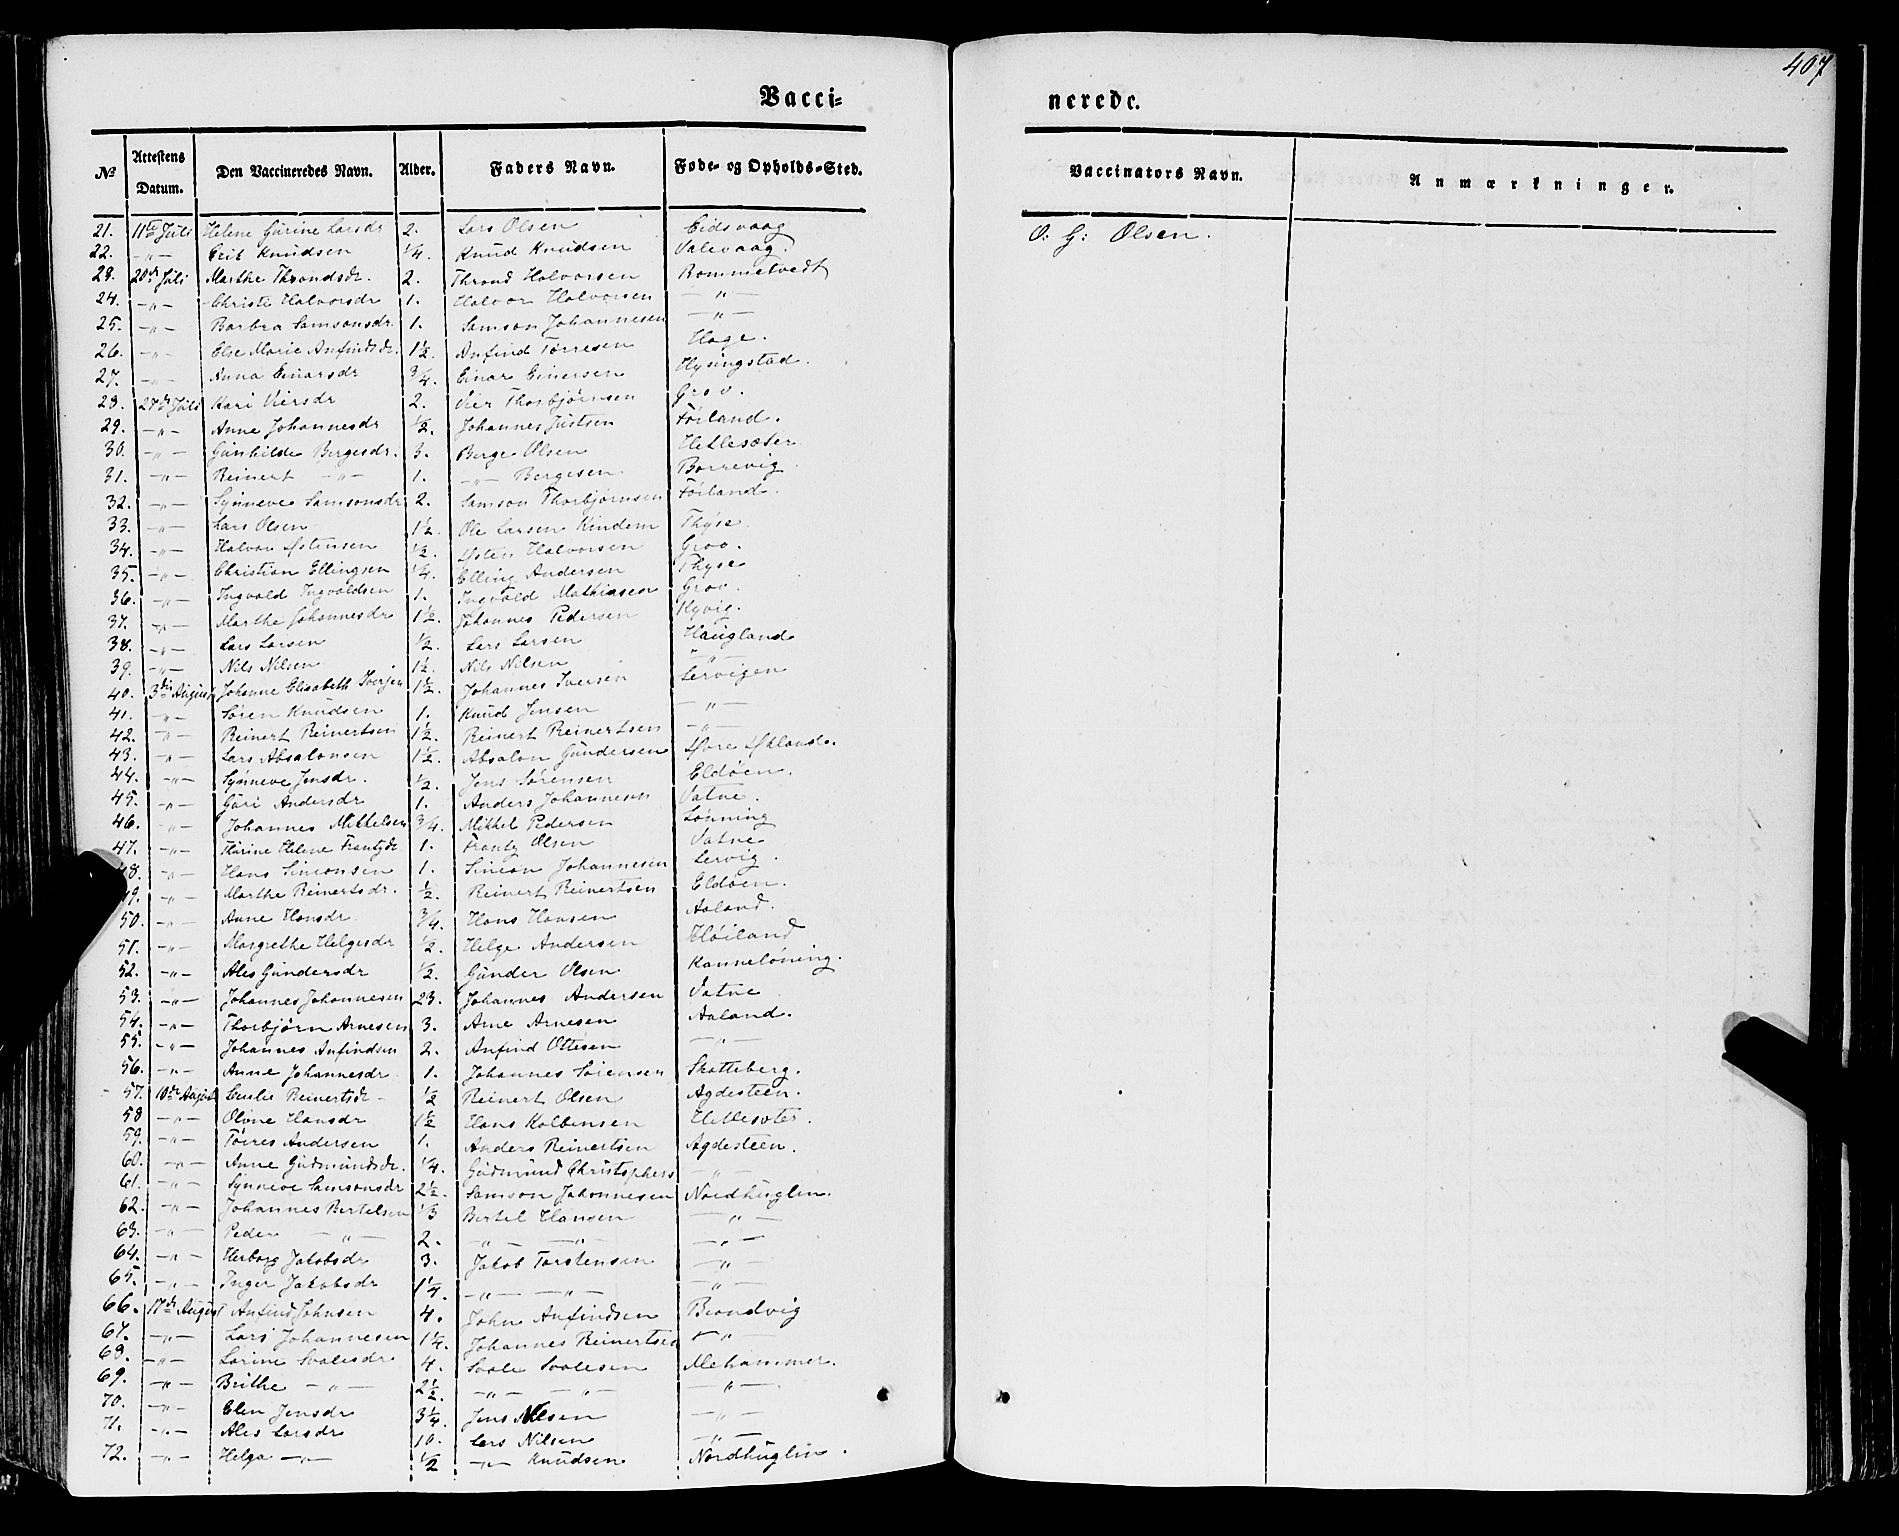 407
Vacci= nerede.
№ Attestens Datum. Den Vaccineredes Navn. Alder. Faders Navn. Føde- og Opholds-Sted. Vaccinators Navn. Anmærkninger.
21. 11te Juli Helene Gurine Larsdr 2. Lars Olsen Eidsvaag O: G: Olsen.
22. -"- Erik Knudsen 1/4. Knud Knudsen Valevaag.
23. 20de Juli Marthe Throndsdr. 2. Thrond Halvorsen Rommetvedt
24. -"- Christi Halvorsdr 1. Halvor Halvorsen -"-
25. -"- Barbra Samsonsdr. 1. Samson Johannesen -"-
26. -"- Else Marie Anfindsdr. 1 1/2. Anfind Torresen Hage.
27. -"- Anna Einarsdr 3/4. Einar Einersen Hysingstad.
28. 28de Juli Kari Viersdr 2. Vier Thorbjørnsen Grov.
29. -"- Anne Johannesdr 1/2. Johannes Justsen Førland.
30. -"- Gunhilde Bergesdr. 3. Berge Olsen Hetlesæter
31. -"- Reinert -"- 1. -"- Bergesen Borrevig
32. -"- Synneve Samsonsdr 2. Samson Thorbjørnsen Førland.
33. -"- Lars Olsen 1 1/2. Ole Larsen Kindem Thyse
34. -"- Halvor Østensen 1/2. Østen Halvorsen Grov.
35. -"- Christian Ellingsen 1/4. Elling Andersen Thyse
36. -"- Ingvald Ingvaldsen 1. Ingvald Mathiasen Grov.
37. -"- Marthe Johannesdr 1 1/2. Johannes Pedersen Kyvig.
38. -"- Lars Larsen 1/2. Lars Larsen Haugland
39. -"- Nils Nilsen 1 1/2. Nils Nilsen -"-
40. 3die August Johanne Elisabeth Iversen 1 1/2. Johannes Iversen Lervigen
41. -"- Søren Knudsen 1. Knud Jensen -"-
42. -"- Reinert Reinertsen 1 1/2. Reinert Reinertsen -"-
43. -"- Lars Absalonsen 1 1/2. Absalon Gundersen Øvre Økland.
44. -"- Synneve Jensdr. 1/2. Jens Sørensen Eldøen.
45. -"- Guri Andersdr 1. Anders Johannesen Vatne.
46. -"- Johannes Mikkelsen 3/4. Mikkel Pedersen Lønning
47. -"- Thurine Helene Frantzdr 1. Frantz Olsen Vatne
48. -"- Hans Simonsen 1. Simon Johannesen Lervig.
49. -"- Marthe Reinertsdr. 1/2. Reinert Reinertsen Eldøen.
50. -"- Anne Hansdr. 3/4. Hans Hansen Aaland.
51. -"- Margrethe Helgesdr 1/2. Helge Andersen Høiland
52. -"- Ales Gundersdr 1/2. Gunder Olsen Kanneløning.
53. -"- Johannes Johannesen 23. Johannes Andersen Vatne
54. -"- Thorbjørn Arnesen 3. Arne Arnesen Aaland.
55. -"- Johannes Anfindsen 2. Anfind Ottesen -"-
56. -"- Anne Johannesdr. 1. Johannes Sørensen Skatteberg.
57. 10de August Reinertsdr - 1/2 Reinert Olsen Agdesteen.
58 -"- Oline Hansdr 1 1/2 Hans Kolbensen Hetlesæter.
59. -"- Tørres Andersen 1. Anders Reinertsen Agdesteen.
60. -"- Anne Gudmundsdr. 1/4. Gudmund Christophers -"-
61. -"- Synneve Samsonsdr 2 1/2. Samson Johannesen Nordhuglen.
62. -"- Johannes Bertelsen 1/3 Bertel Hansen -"-
63. -"- Peder -"- 2. -"- -"- -"-
64. -"- Herborg Jakobsdr 3. Jakob Torstensen -"-
65. -"- Inger Jakobsdr 1 1/4. -"- -"- -"-
66. 17de August Anfind Johnsen 4. John Anfindsen Brandvig
67. -"- Lars Johannesen 1 1/4. Johannes Reinertsen -"-
68. -"- Larine Svalesdr 4. Svale Svalesen Mehammer.
69. -"- Brithe -"- 2 1/2. -"- -"- -"-
70. -"- Elen Jensdr 3 1/4. Jens Nilsen -"-
71. -"- Ales Larsdr 10. Lars Nilsen -"-
72. -"- Helga -"- 1/2 -"- Knudsen Nordhuglen.